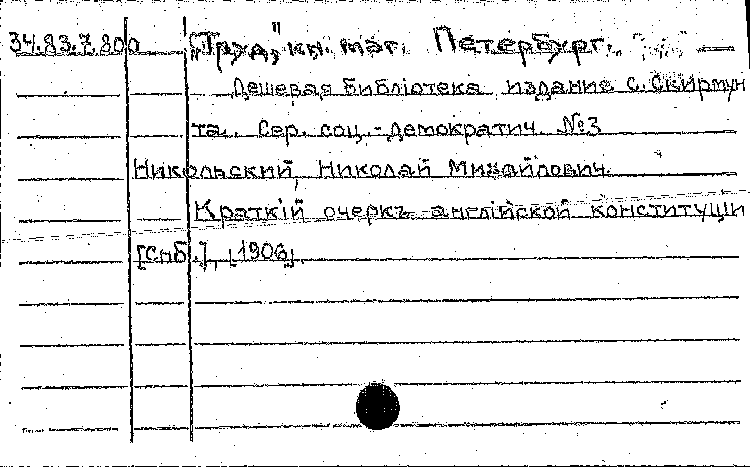 34.83.7.800 „Труд," кн. маг. Петербург.
Дешевая библіотека издание С. Скирмун
та. Сер. соц.-демократич. №3
Никольский, Николай Михайлович.
Краткій очеркъ англійской конституціи
[Спб.], [1906].